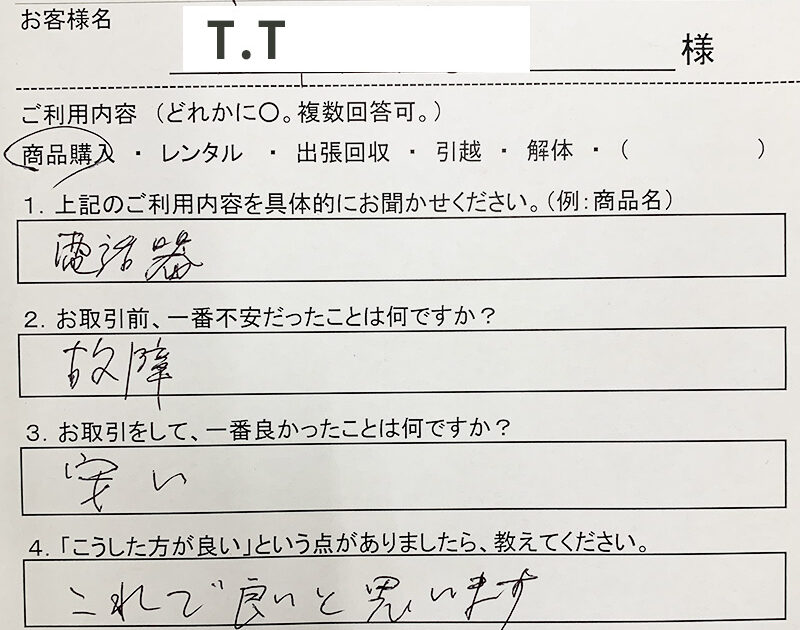 お客様名
T.T 様
ご利用内容 （どれかに〇。複数回答可。）
商品購入 ・ レンタル ・ 出張回収 ・ 引越 ・ 解体 ・（ ）
１．上記のご利用内容を具体的にお聞かせください。（例：商品名）
電話器
２．お取引前、一番不安だったことは何ですか？
故障
３．お取引をして、一番良かったことは何ですか？
安い
４．「こうした方が良い」という点がありましたら、教えてください。
これで良いと思います